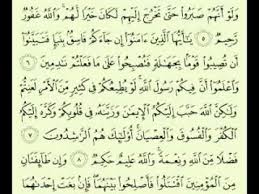 وَلَوْ أَنَّهُمْ صَبَرُوا۟ حَتَّىٰ تَخْرُجَ إِلَيْهِمْ لَكَانَ خَيْرًا لَّهُمْ ۚ وَٱللَّهُ غَفُورٌ
رَّحِيمٌ ٥ يَٰٓأَيُّهَا ٱلَّذِينَ ءَامَنُوٓا۟ إِن جَآءَكُمْ فَاسِقٌۢ بِنَبَإٍ فَتَبَيَّنُوٓا۟
أَن تُصِيبُوا۟ قَوْمًۢا بِجَهَٰلَةٍ فَتُصْبِحُوا۟ عَلَىٰ مَا فَعَلْتُمْ نَٰدِمِينَ ٦
وَٱعْلَمُوٓا۟ أَنَّ فِيكُمْ رَسُولَ ٱللَّهِ ۚ لَوْ يُطِيعُكُمْ فِى كَثِيرٍ مِّنَ ٱلْأَمْرِ لَعَنِتُّمْ
وَلَٰكِنَّ ٱللَّهَ حَبَّبَ إِلَيْكُمُ ٱلْإِيمَٰنَ وَزَيَّنَهُۥ فِى قُلُوبِكُمْ وَكَرَّهَ إِلَيْكُمُ
ٱلْكُفْرَ وَٱلْفُسُوقَ وَٱلْعِصْيَانَ ۚ أُو۟لَٰٓئِكَ هُمُ ٱلرَّٰشِدُونَ ٧
فَضْلًا مِّنَ ٱللَّهِ وَنِعْمَةً ۚ وَٱللَّهُ عَلِيمٌ حَكِيمٌ ٨ وَإِن طَآئِفَتَانِ
مِنَ ٱلْمُؤْمِنِينَ ٱقْتَتَلُوا۟ فَأَصْلِحُوا۟ بَيْنَهُمَا ۖ فَإِنۢ بَغَتْ إِحْدَىٰهُمَا